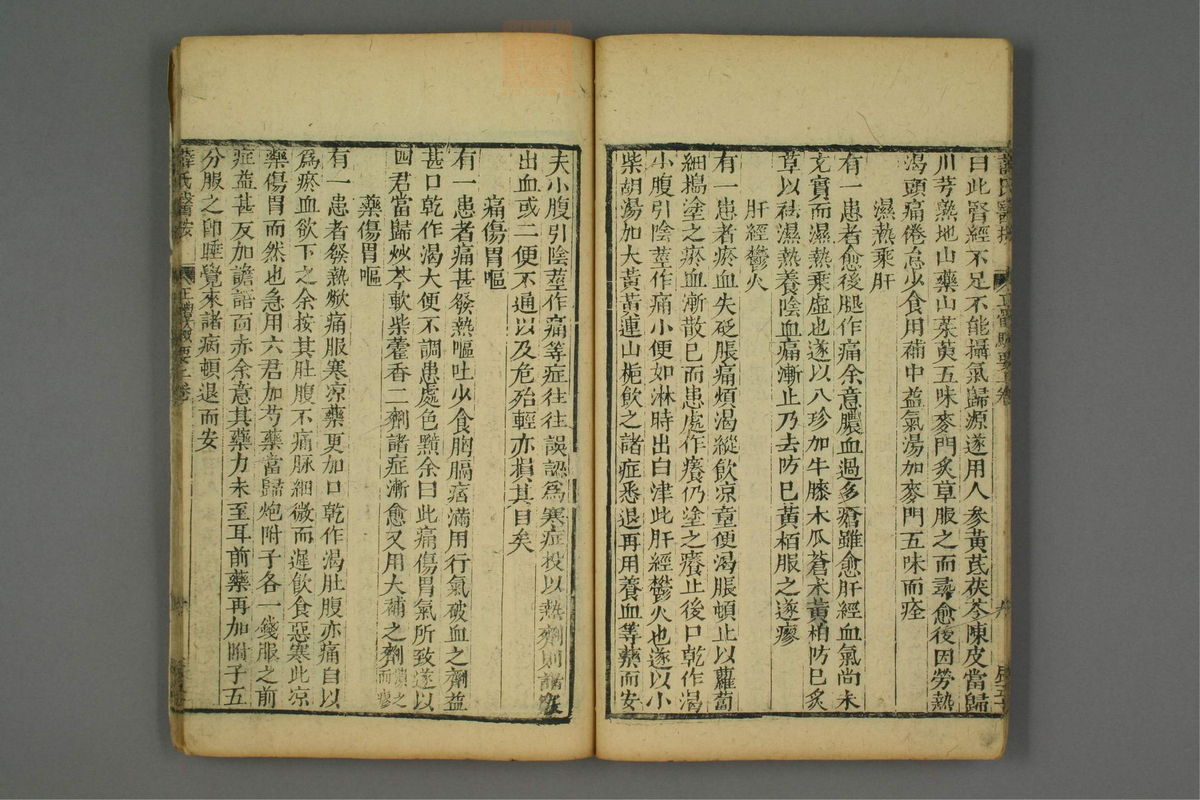 曰此腎經不足不能攝氣歸源遂用人參黃芪茯苓陳皮當歸
川芎熟地山藥山茱萸五味麥門炙草服之而尋愈後因勞熱
渴頭痛倦怠少食用補中益氣湯加麥門五味而痊
濕熱乘肝
有一患者愈後腿作痛余意膿血過多瘡雖愈肝經血氣尚未
充實而濕熱乘虛也遂以八珍加牛膝木瓜蒼朮黃柏防巳炙
草以祛濕熱養陰血痛漸止乃去防巳黃栢服之遂瘳
肝經鬱火
有一患者瘀血失砭脹痛煩渴縱飲凉童便渴脹頓止以蘿蔔
細搗塗之瘀血漸散巳而患處作癢仍塗之癢止後口乾作渴
小腹引陰莖作痛小便如淋時出白津此肝經鬱火也遂以小
柴胡湯加大黃黃連山梔飲之諸症悉退再用養血等藥而安
夫小腹引陰莖作痛等症往往誤認爲寒症投以熱劑則諸竅
出血或二便不通以及危殆輕亦損其目矣
痛傷胃嘔
有一患者痛甚發熱嘔吐少食胸膈痞滿用行氣破血之劑益
甚口乾作渴大便不調患處色黯余曰此痛傷胃氣所致遂以
四君當歸炒芩軟柴藿香二劑諸症漸愈又用大補之劑潰之
而瘳
藥傷胃嘔
有一患者發熱焮痛服寒凉藥更加口乾作渴肚腹亦痛自以
爲瘀血欲下之余按其肚腹不痛脉細微而遲飲食惡寒此凉
藥傷胃而然也急用六君加芍藥當歸炮附子各一錢服之前
症益甚反加譫語面赤余意其藥力未至耳前藥再加附子五
分服之卽睡覺來諸病頓退而安
薛氏醫按
正體類要上卷